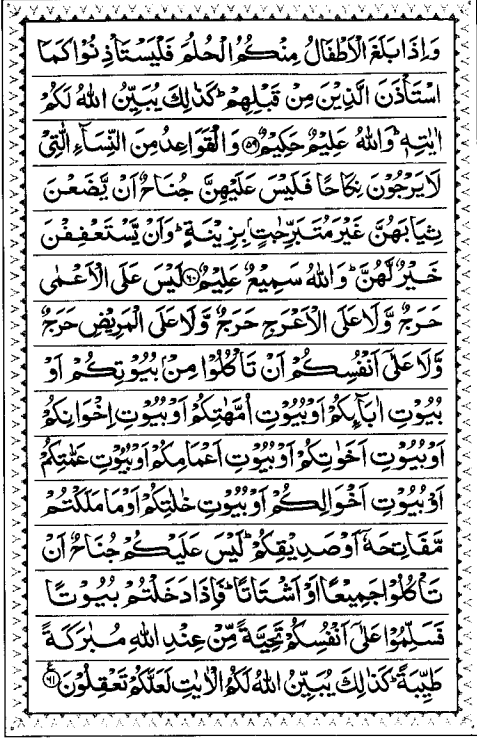 وَاِذَا بَلَغَ الْاَطْفَالُ مِنْكُمُ الْحُلُمَ فَلْيَسْتَاْذِنُوْا كَمَا
اسْتَاْذَنَ الَّذِيْنَ مِنْ قَبْلِهِمْ ؕ كَذٰلِكَ يُبَيِّنُ اللّٰهُ لَكُمْ
اٰيٰتِهٖ ؕ وَاللّٰهُ عَلِيْمٌ حَكِيْمٌ ﴿۵۹﴾ وَالْقَوَاعِدُ مِنَ النِّسَآءِ الّٰتِيْ
لَا يَرْجُوْنَ نِكَاحًا فَلَيْسَ عَلَيْهِنَّ جُنَاحٌ اَنْ يَّضَعْنَ
ثِيَابَهُنَّ غَيْرَ مُتَبَرِّجٰتٍۭ بِزِيْنَةٍ ؕ وَاَنْ يَّسْتَعْفِفْنَ
خَيْرٌ لَّهُنَّ ؕ وَاللّٰهُ سَمِيْعٌ عَلِيْمٌ ﴿۶۰﴾ لَيْسَ عَلَى الْاَعْمٰى
حَرَجٌ وَّلَا عَلَى الْاَعْرَجِ حَرَجٌ وَّلَا عَلَى الْمَرِيْضِ حَرَجٌ
وَّلَا عَلٰٓى اَنْفُسِكُمْ اَنْ تَاْكُلُوْا مِنْۢ بُيُوْتِكُمْ اَوْ
بُيُوْتِ اٰبَآئِكُمْ اَوْ بُيُوْتِ اُمَّهٰتِكُمْ اَوْ بُيُوْتِ اِخْوَانِكُمْ
اَوْ بُيُوْتِ اَخَوٰتِكُمْ اَوْ بُيُوْتِ اَعْمَامِكُمْ اَوْ بُيُوْتِ عَمّٰتِكُمْ
اَوْ بُيُوْتِ اَخْوَالِكُمْ اَوْ بُيُوْتِ خٰلٰتِكُمْ اَوْ مَا مَلَكْتُمْ
مَّفَاتِحَهٗٓ اَوْ صَدِيْقِكُمْ ؕ لَيْسَ عَلَيْكُمْ جُنَاحٌ اَنْ
تَاْكُلُوْا جَمِيْعًا اَوْ اَشْتَاتًا ؕ فَاِذَا دَخَلْتُمْ بُيُوْتًا
فَسَلِّمُوْا عَلٰٓى اَنْفُسِكُمْ تَحِيَّةً مِّنْ عِنْدِ اللّٰهِ مُبٰرَكَةً
طَيِّبَةً ؕ كَذٰلِكَ يُبَيِّنُ اللّٰهُ لَكُمُ الْاٰيٰتِ لَعَلَّكُمْ تَعْقِلُوْنَ ﴿۶۱﴾ ع